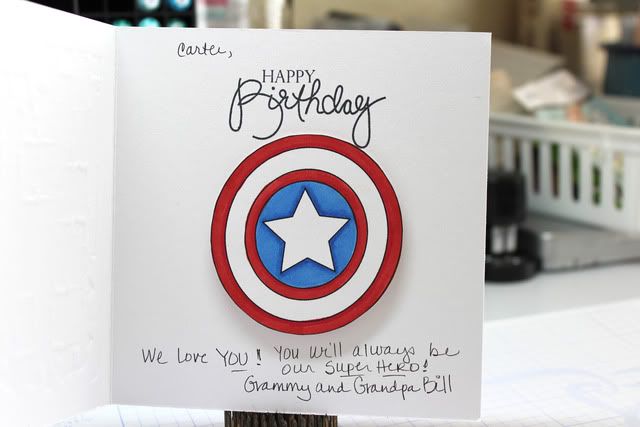 Carter,
HAPPY
Birthday
We Love YOU! You will always be
our Super Hero!
Grammy and Grandpa Bill